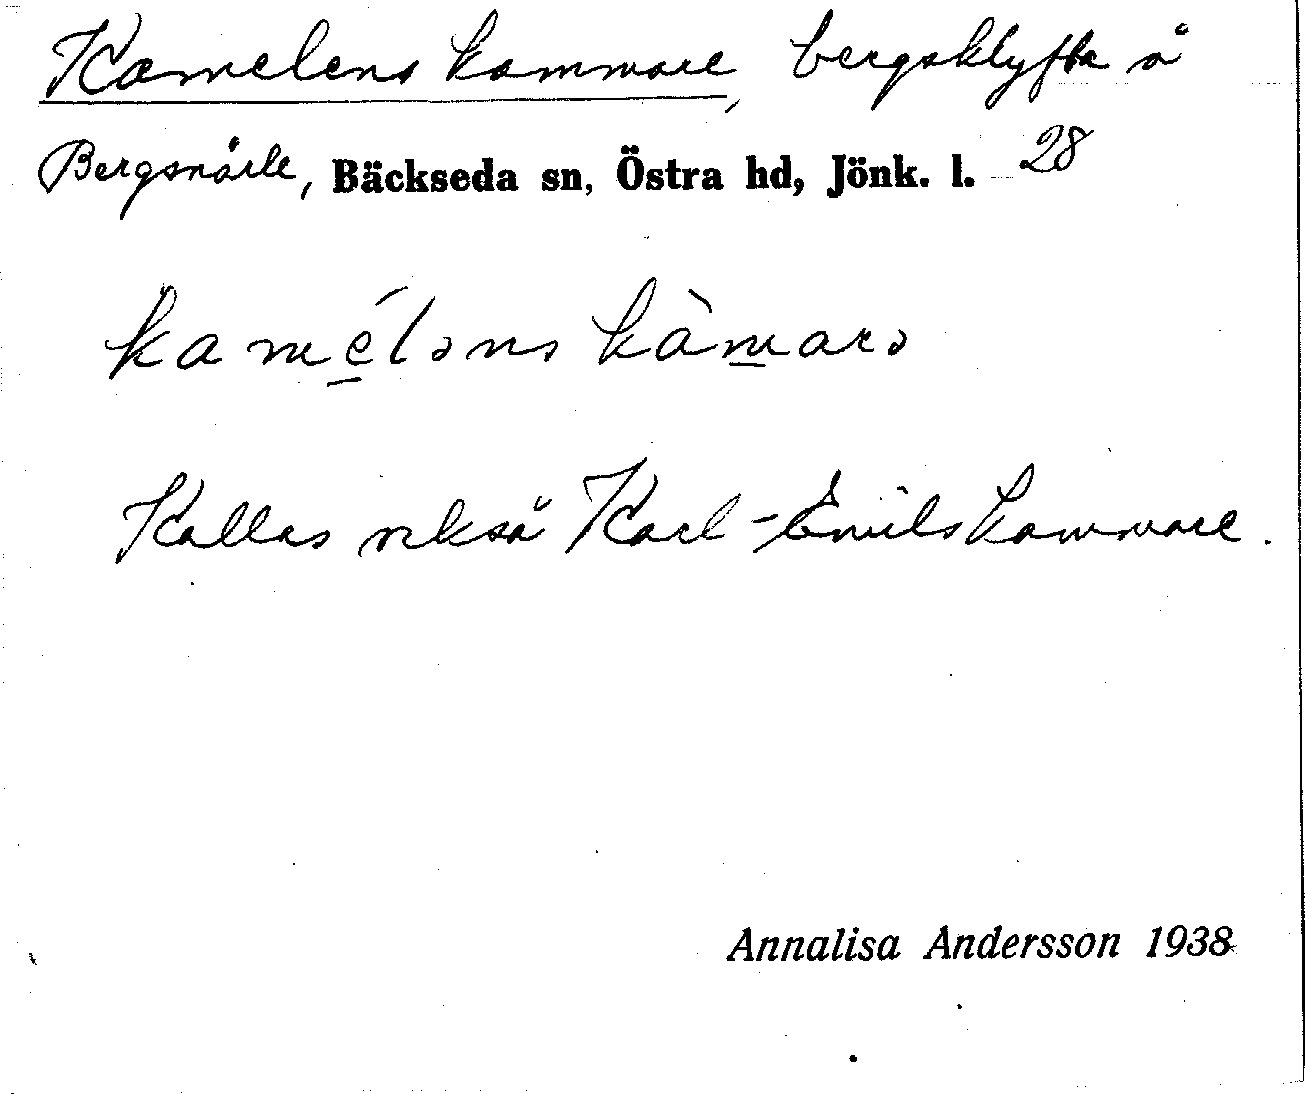 Kamelens kammare, bergsklyfta å
Bergsnärle, Bäckseda sn, Östra hd, Jönk. l. 28
kamé̱ləns kàm̱arə
Kallas också Karl-Emils kammare.
Annalisa Andersson 1938